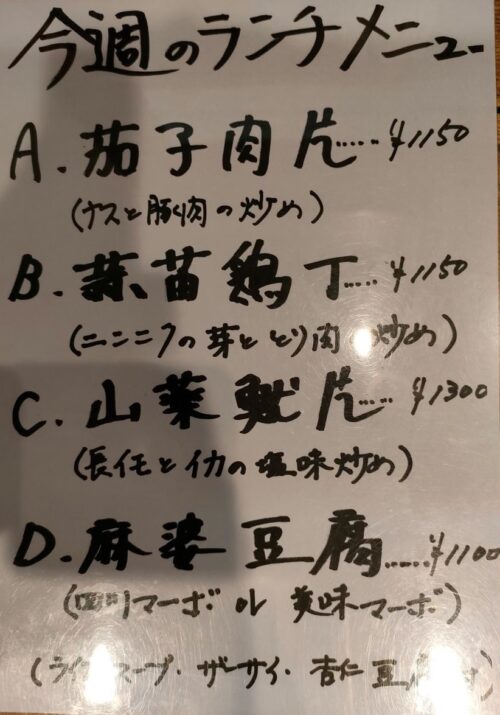 今週のランチメニュー
A.茄子肉片.....¥1150
(ナスと豚肉の炒め)
B.蒜苗鶏丁.....¥1150
(ニンニクの芽ととり肉の炒め)
C.山薬魷片.....¥1300
(長イモとイカの塩味炒め)
D.麻婆豆腐......¥1100
(四川マーボ or 美味マーボ)
(ライス・スープ・ザーサイ・杏仁豆腐付)